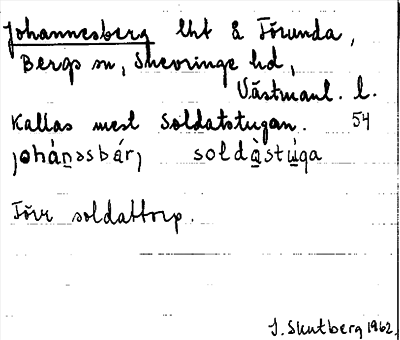 Johannesberg lht å Törunda,
Bergs sn, Snevringe hd,
Västmanl. l.
Kallas mest Soldatstugan. 54
johánəsbárj soldàstùga
Förr soldattorp.
S. Skutberg 1962.